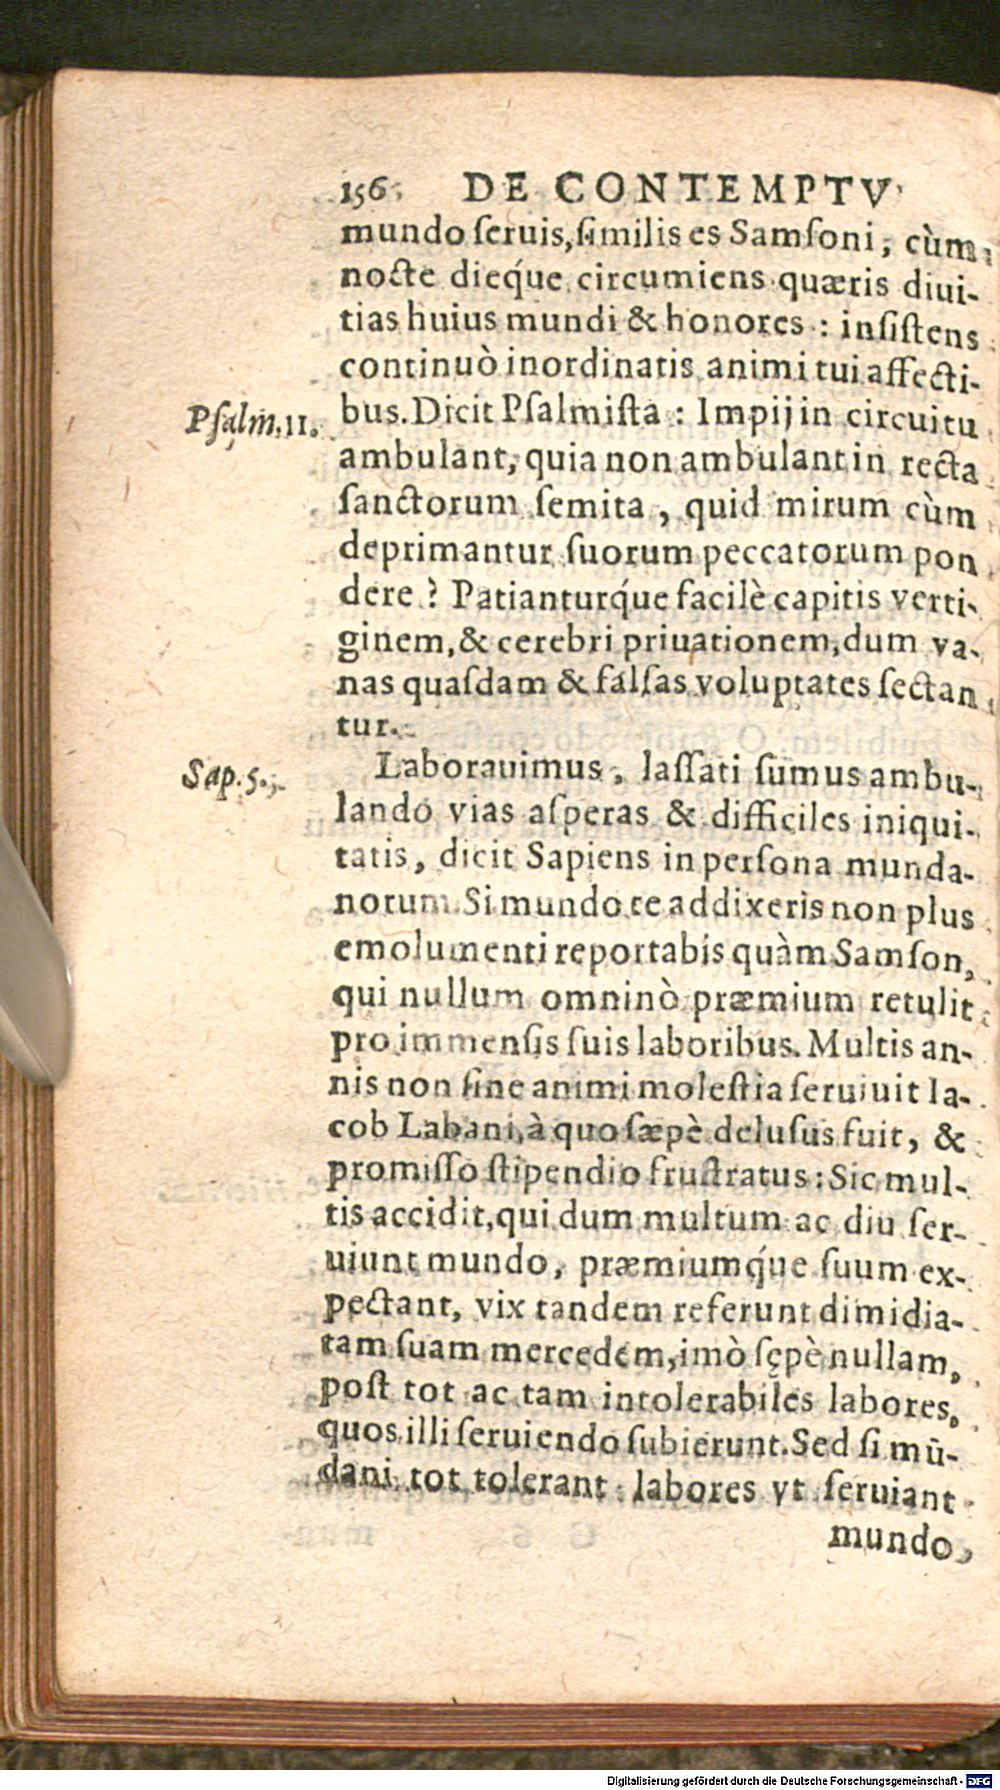 156 DE CONTEMPTV
mundo ſeruis, ſimilis es Samſoni, cùm
nocte dieq́ue circumiens quæris diui-
tias huius mundi & honores : inſiſtens
continuò inordinatis animi tui affecti-
Pſalm. 11.
bus. Dicit Pſalmiſta : Impij in circuitu
ambulant, quia non ambulant in recta
ſanctorum ſemita, quid mirum cùm
deprimantur ſuorum peccatorum pon
dere ? Patianturq́ue facilè capitis verti-
ginem, & cerebri priuationem, dum va-
nas quaſdam & falſas voluptates ſectan
tur.
Sap. 5.
Laborauimus, laſſati ſumus ambu-
lando vias aſperas & difficiles iniqui-
tatis, dicit Sapiens in perſona munda-
norum. Si mundo te addixeris non plus
emolumenti reportabis quàm Samſon,
qui nullum omninò præmium retulit
pro immenſis ſuis laboribus. Multis an-
nis non ſine animi moleſtia ſeruiuit Ia-
cob Labani, à quo ſæpè deluſus fuit, &
promiſſo ſtipendio fruſtratus : Sic mul-
tis accidit, qui dum multum ac diu ſer-
uiunt mundo, præmiumq́ue ſuum ex-
pectant, vix tandem referunt dimidia-
tam ſuam mercedem, imò ſępè nullam,
poſt tot ac tam intolerabiles labores,
quos illi ſeruiendo ſubierunt. Sed ſi mū-
dani tot tolerant labores vt ſeruiant
mundo,
Digitalisierung gefördert durch die Deutsche Forschungsgemeinschaft - DFG